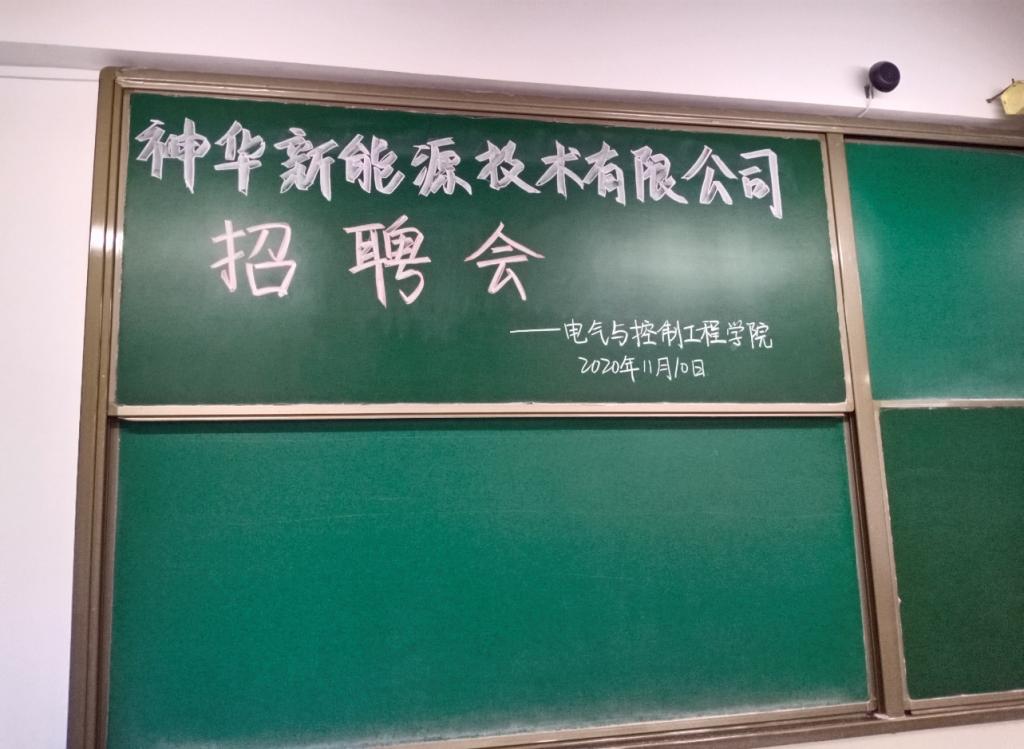 神华新能源技术有限公司
招聘会
——电气与控制工程学院
2020年11月10日